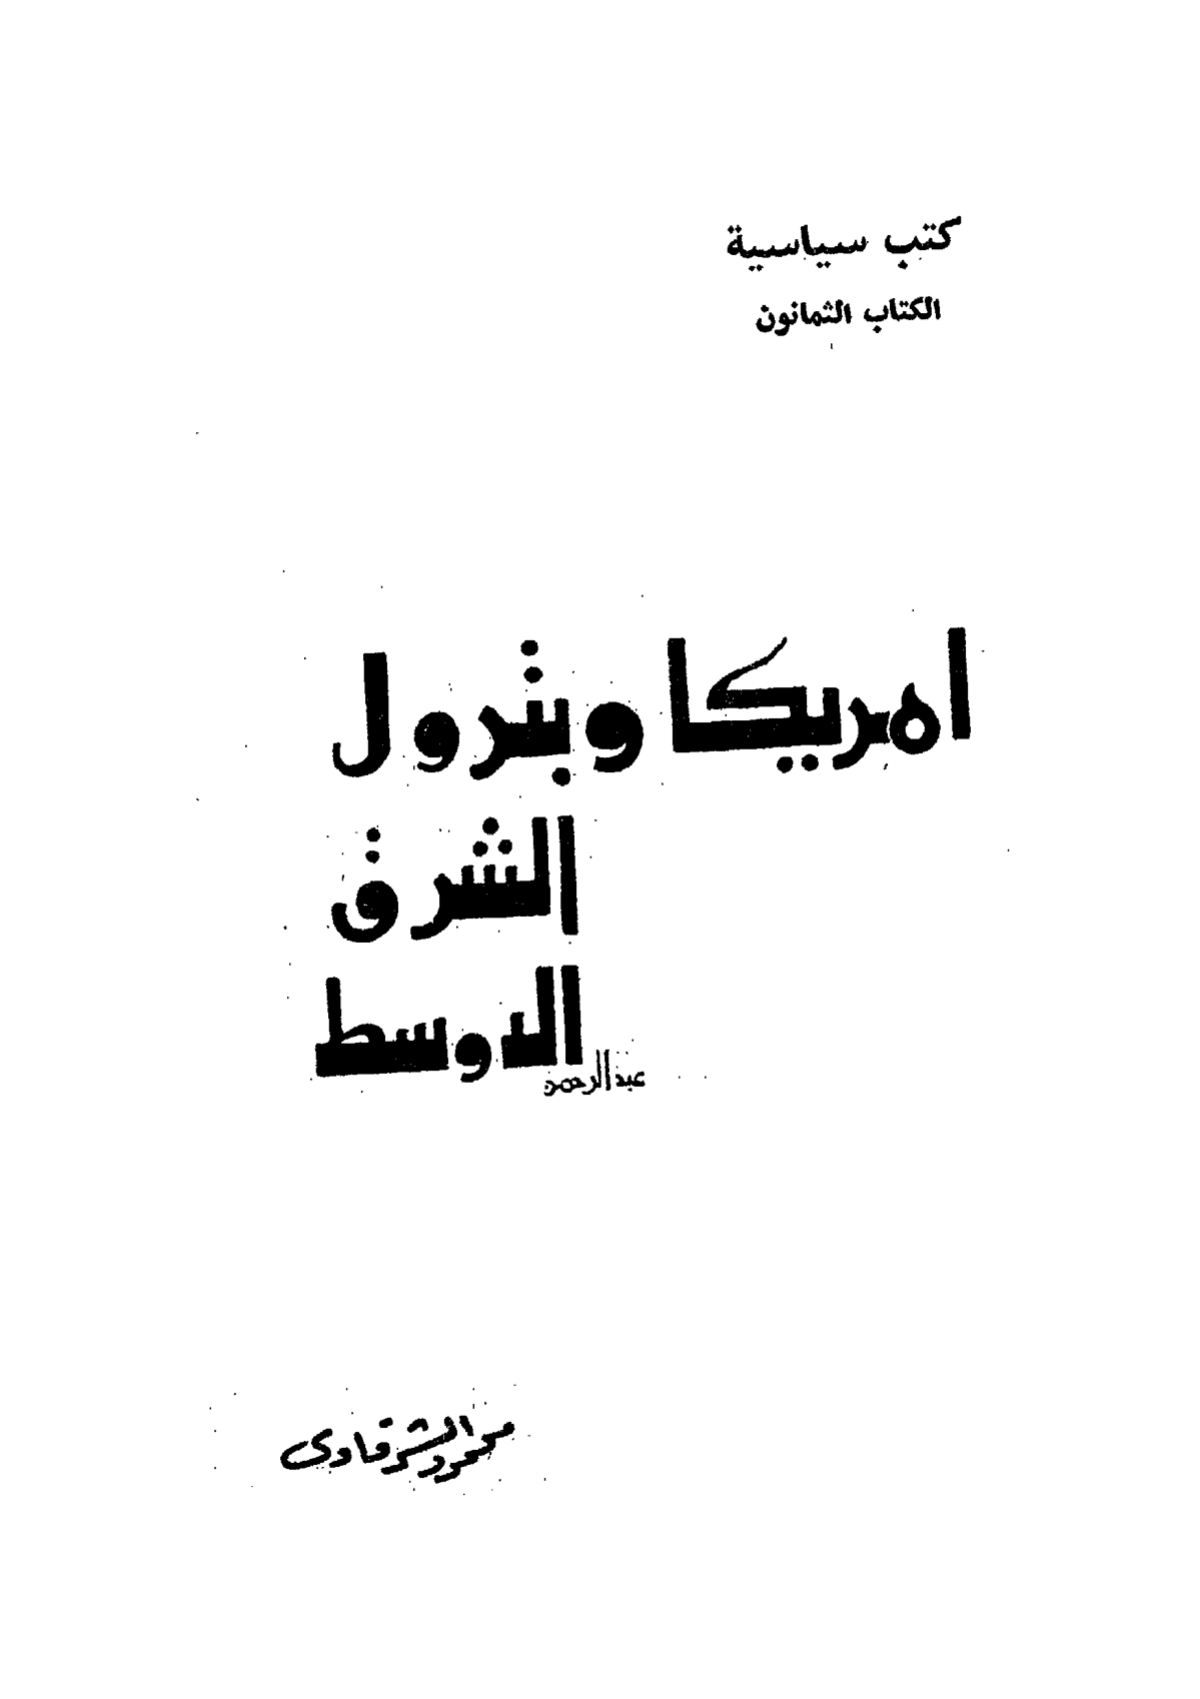 كتب سياسية
الكتاب الثمانون
امريكا وبترول
الشرق
الاوسط
عبدالرحمن
محمود الشرقاوى